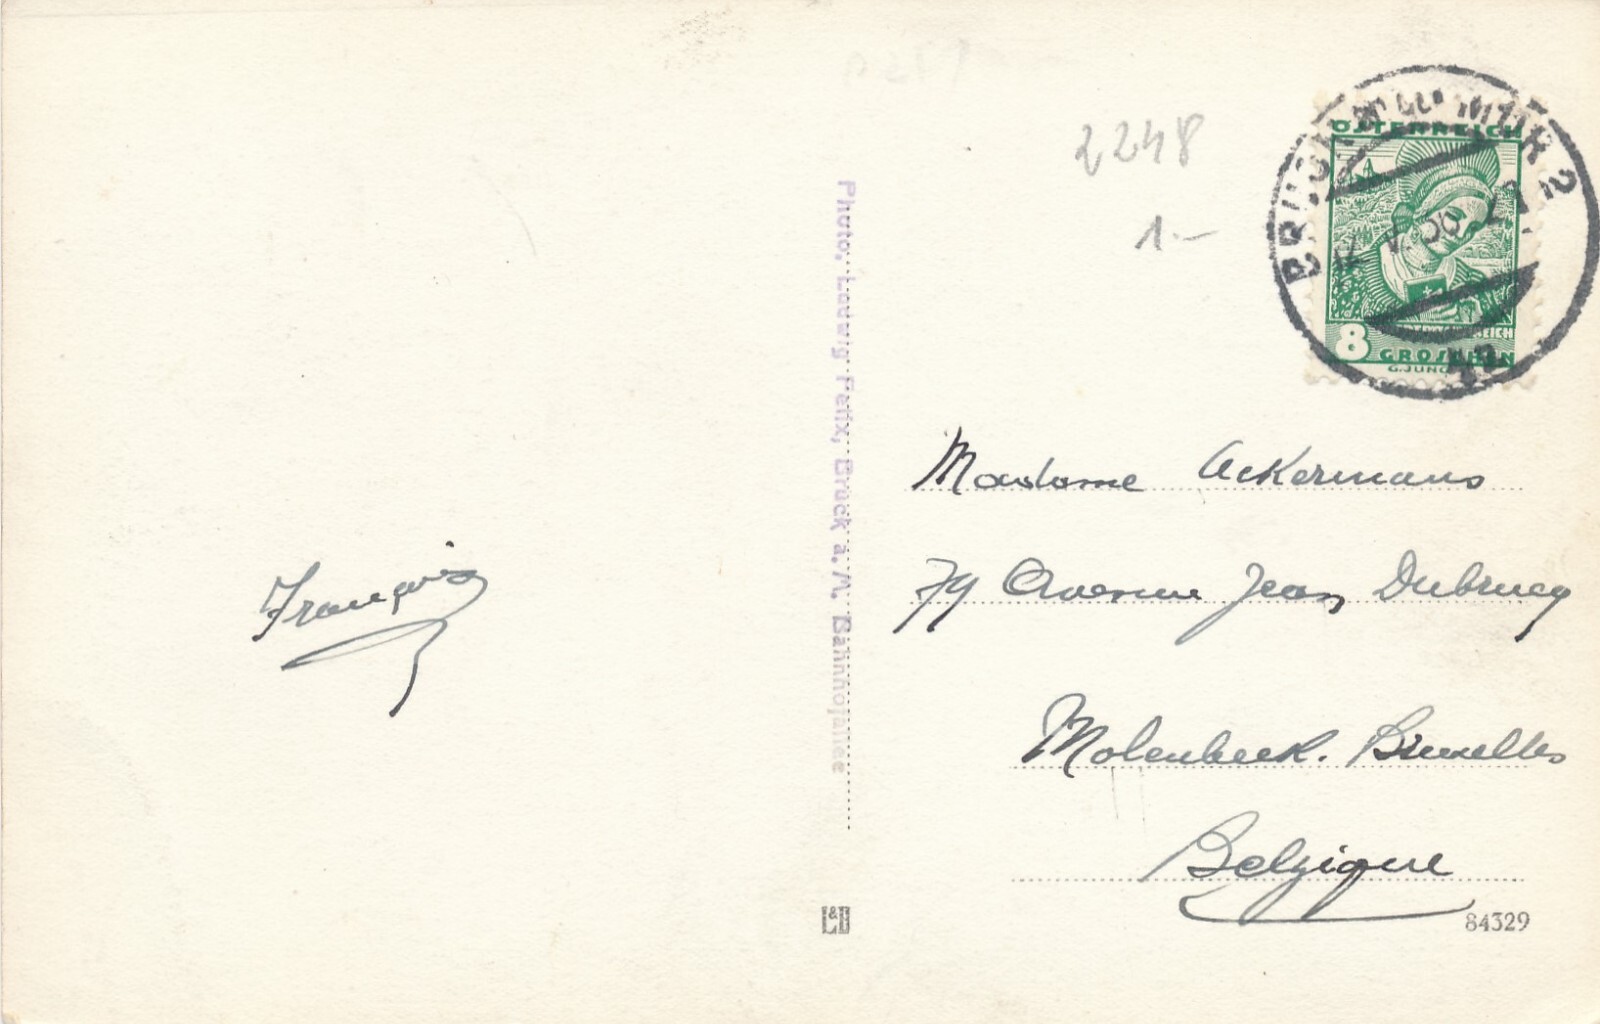 2248
1.-
BRUCK a. d. MUR 2
ÖSTERREICH
8 GROSCHEN
Photo. Ludwig Felix, Bruck a. M. Bahnhofallee
Madame Ackermans
79 Avenue Jean Dubrucq
Molenbeek. Bruxelles
Belgique
François
L&B
84329